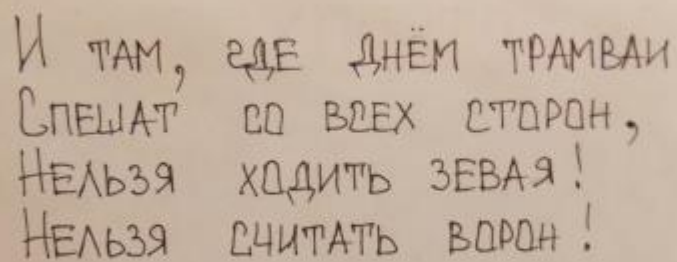 И ТАМ, ГДЕ ДНЁМ ТРАМВАИ
СПЕШАТ СО ВСЕХ СТОРОН,
НЕЛЬЗЯ ХОДИТЬ ЗЕВАЯ!
НЕЛЬЗЯ СЧИТАТЬ ВОРОН!